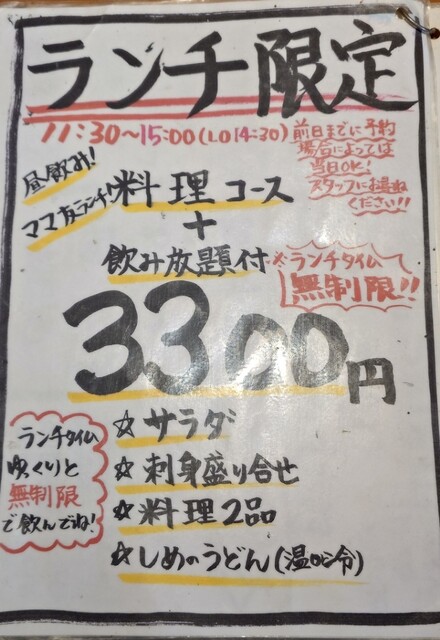 ランチ限定
11:30～15:00(LO 14:30)
前日までに予約
場合によっては
当日OK!
スタッフにお尋ね
ください!!
昼飲み!
ママ友ランチ!
料理コース
+
飲み放題付
※ランチタイム
無制限!!
3300円
ランチタイム
ゆっくりと
無制限
で飲んでね!
☆サラダ
☆刺身盛り合せ
☆料理2品
☆しめのうどん(温or冷)